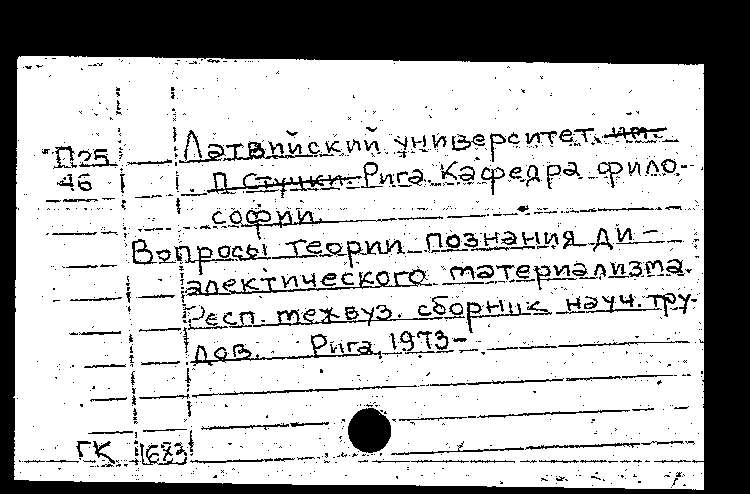 П25
46
Латвийский университет. им.
П Стучки. Рига. Кафедра фило-
софии.
Вопросы теории познания ди-
алектического материализма.
Респ. межвуз. сборник науч. тру-
дов. Рига, 1973-
ГК 1683